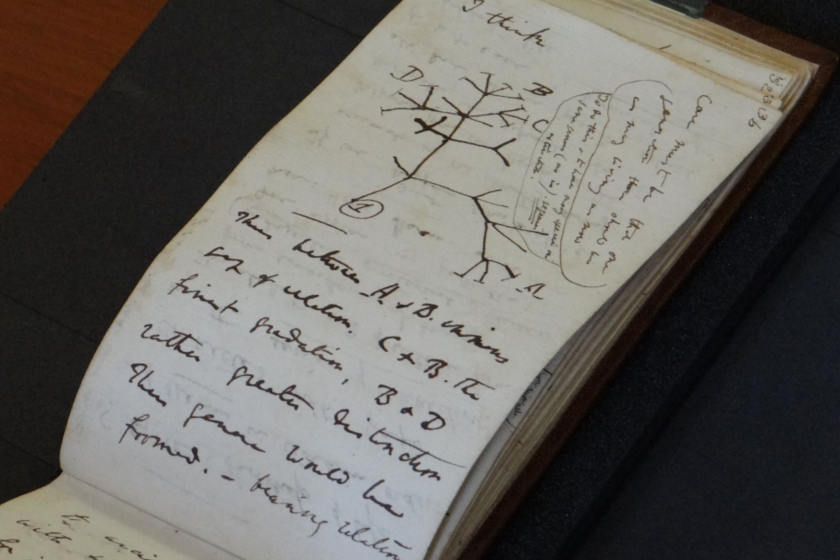 I think
B
D
C
1
A
Case must be that
one generation then should be
as many living as now
To do this & to have many species in
same genus (as is) requires
extinction.
Thus between A & B. immens
gap of relation. C & B. The
finest gradation, B & D
rather greater distinction
Thus genera would be
formed. — bearing relation